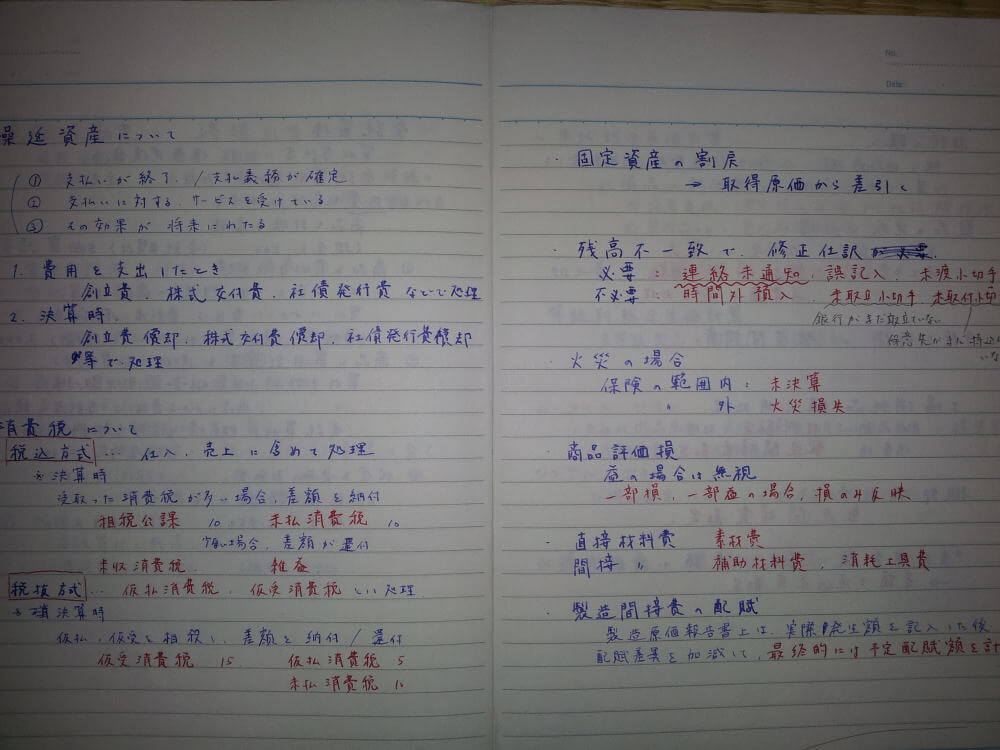 繰延資産について
① 支払いが終了、/支払義務が確定
② 支払いに対する、サービスを受けている
③ その効果が 将来にわたる
1. 費用を支出したとき
創立費、株式交付費、社債発行費 などで処理
2. 決算時、
創立費償却、株式交付費償却、社債発行費償却
等で処理
消費税について
税込方式 … 仕入、売上に含めて処理
※決算時
受取った消費税が多い場合、差額を納付
租税公課 10 未払消費税 10
少ない場合、差額が還付
未収消費税 雑益
税抜方式 … 仮払消費税、仮受消費税として処理
※決算時
仮払、仮受を相殺し、差額を納付/還付
仮受消費税 15 仮払消費税 5
未払消費税 10
No.
Date
・固定資産の割戻
→ 取得原価から差引く
・残高不一致で 修正仕訳
必要 : 連絡未通知、誤記入、未渡小切手
不必要 時間外預入、未取立小切手、未取付小切
銀行がまだ取立ていない
・火災の場合
保険の範囲内 : 未決算
〃 外 火災損失
・商品評価損
益の場合は無視
一部損、一部益の場合、損のみ反映
・直接材料費 素材費
間接 〃 補助材料費、消耗工具費
・製造間接費の配賦
製造原価報告書上は、実際発生額を記入した後
配賦差異を加減して、最終的には予定配賦額を計